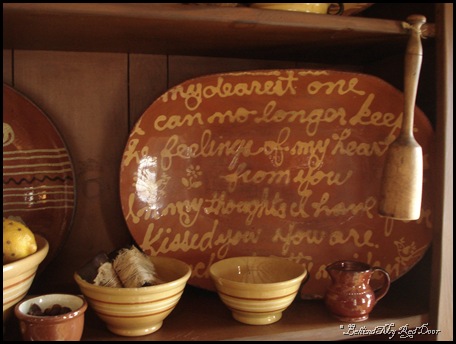 my dearest one
I can no longer keep
the feelings of my heart
from you
In my thoughts I have
kissed you you are
Behind My Red Door